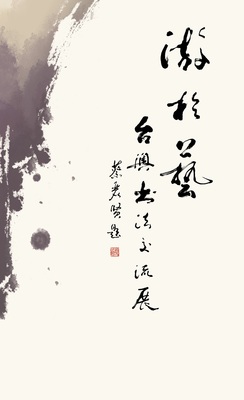 游於藝
台興書法交流展
蔡 題